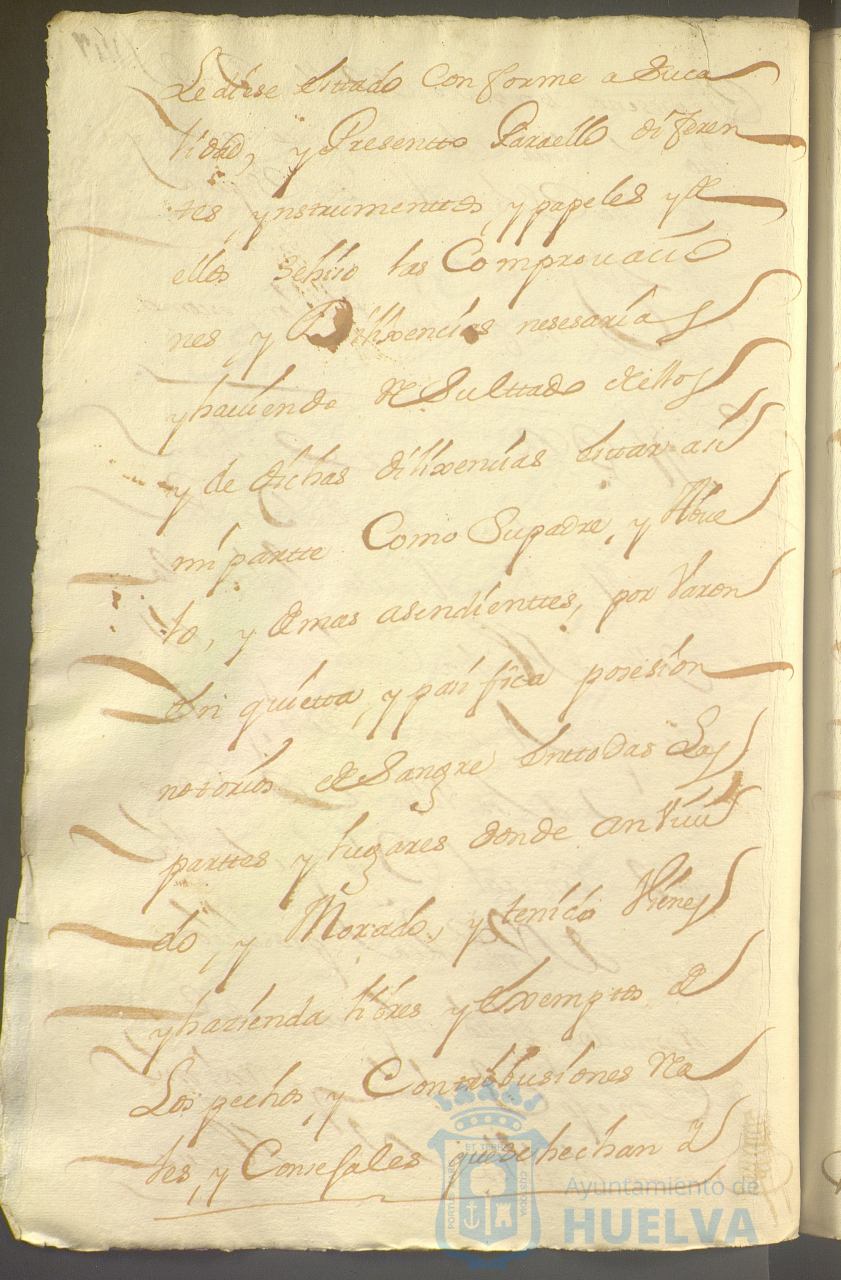 Le diese Estado Conforme a Suca
lidad, y Presentto Paraello diferen
tes, ynstrumenttos, y papeles y de
ellos sehiso las Comprouacio
nes y Dilixencias nesesarias
y hauiendo Resulttado dellos
y de dichas dilixencias Estar asi
mi partte Como Supadre, y Abue
lo, y demas asendienttes, por Varon
En quietta, y pasifica posesion
notorios de Sangre Enttodas Las
parttes y lugares donde an Viui
do, y Morado, y tenido Vienes
y hazienda libres y Exemptos de
Los pechos, y Contribusiones Rea
les, y Consejales quese hechan a
Ayuntamiento de
HUELVA